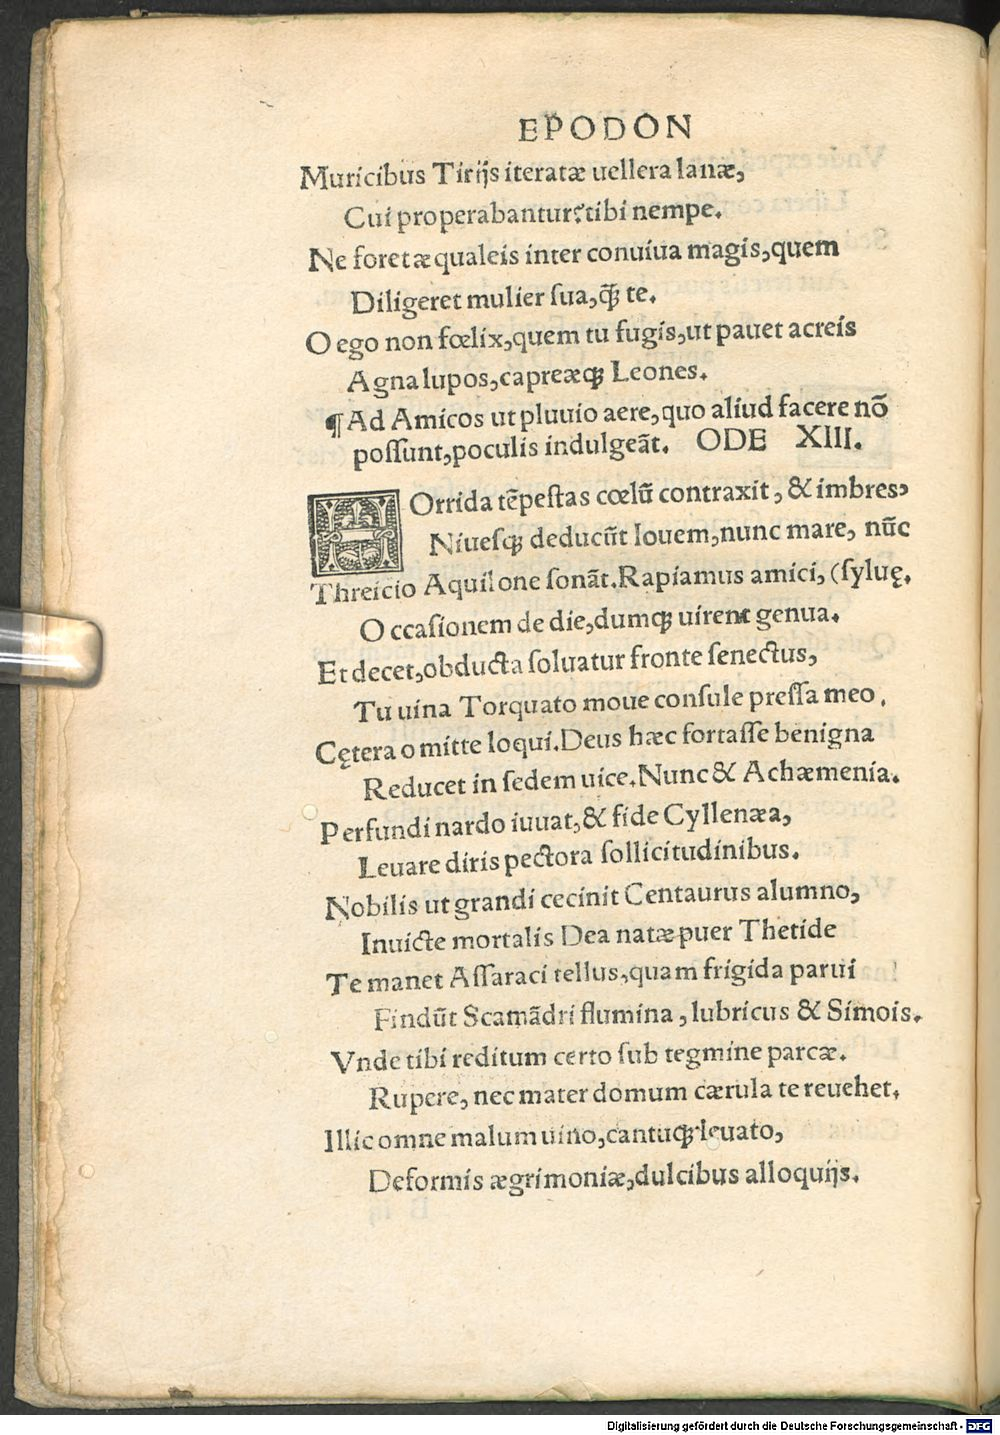 EPODON
Muricibus Tirijs iteratæ uellera lanæ,
Cui properabantur? tibi nempe.
Ne foret æqualeis inter conuiua magis, quem
Diligeret mulier ſua, q̃ te.
O ego non fœlix, quem tu fugis, ut pauet acreis
Agna lupos, capreæq; Leones.
¶ Ad Amicos ut pluuio aere, quo aliud facere nõ
poſſunt, poculis indulgeãt. ODE XIII.
HOrrida tẽpeſtas cœlũ contraxit, & imbres,
Niueſq; deducũt Iouem, nunc mare, nũc
Threicio Aquilone ſonãt. Rapiamus amici, (ſyluę.
Occaſionem de die, dumq; uirent genua.
Et decet, obducta ſoluatur fronte ſenectus,
Tu uina Torquato moue conſule preſſa meo.
Cętera omitte loqui. Deus hæc fortaſſe benigna
Reducet in ſedem uice. Nunc & Achæmenia.
Perfundi nardo iuuat, & fide Cyllenæa,
Leuare diris pectora ſollicitudinibus.
Nobilis ut grandi cecinit Centaurus alumno,
Inuicte mortalis Dea natæ puer Thetide
Te manet Aſſaraci tellus, quam frigida parui
Findũt Scamãdri flumina, lubricus & Simois.
Vnde tibi reditum certo ſub tegmine parcæ.
Rupere, nec mater domum cærula te reuehet.
Illic omne malum uino, cantuq; leuato,
Deformis ægrimoniæ, dulcibus alloquijs.
Digitalisierung gefördert durch die Deutsche Forschungsgemeinschaft - DFG